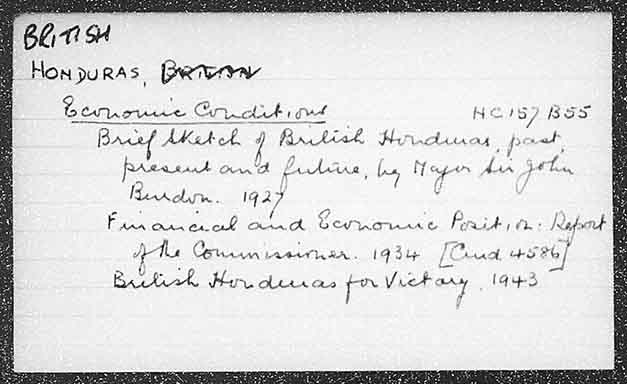 BRITISH
HONDURAS, BRITISH
Economic Conditions HC157 B55
Brief Sketch of British Honduras, past,
present and future, by Major Sir John
Burdon. 1927
Financial and Economic Position. Report
of the Commissioner. 1934 [Cmd 4586]
British Honduras for Victory. 1943